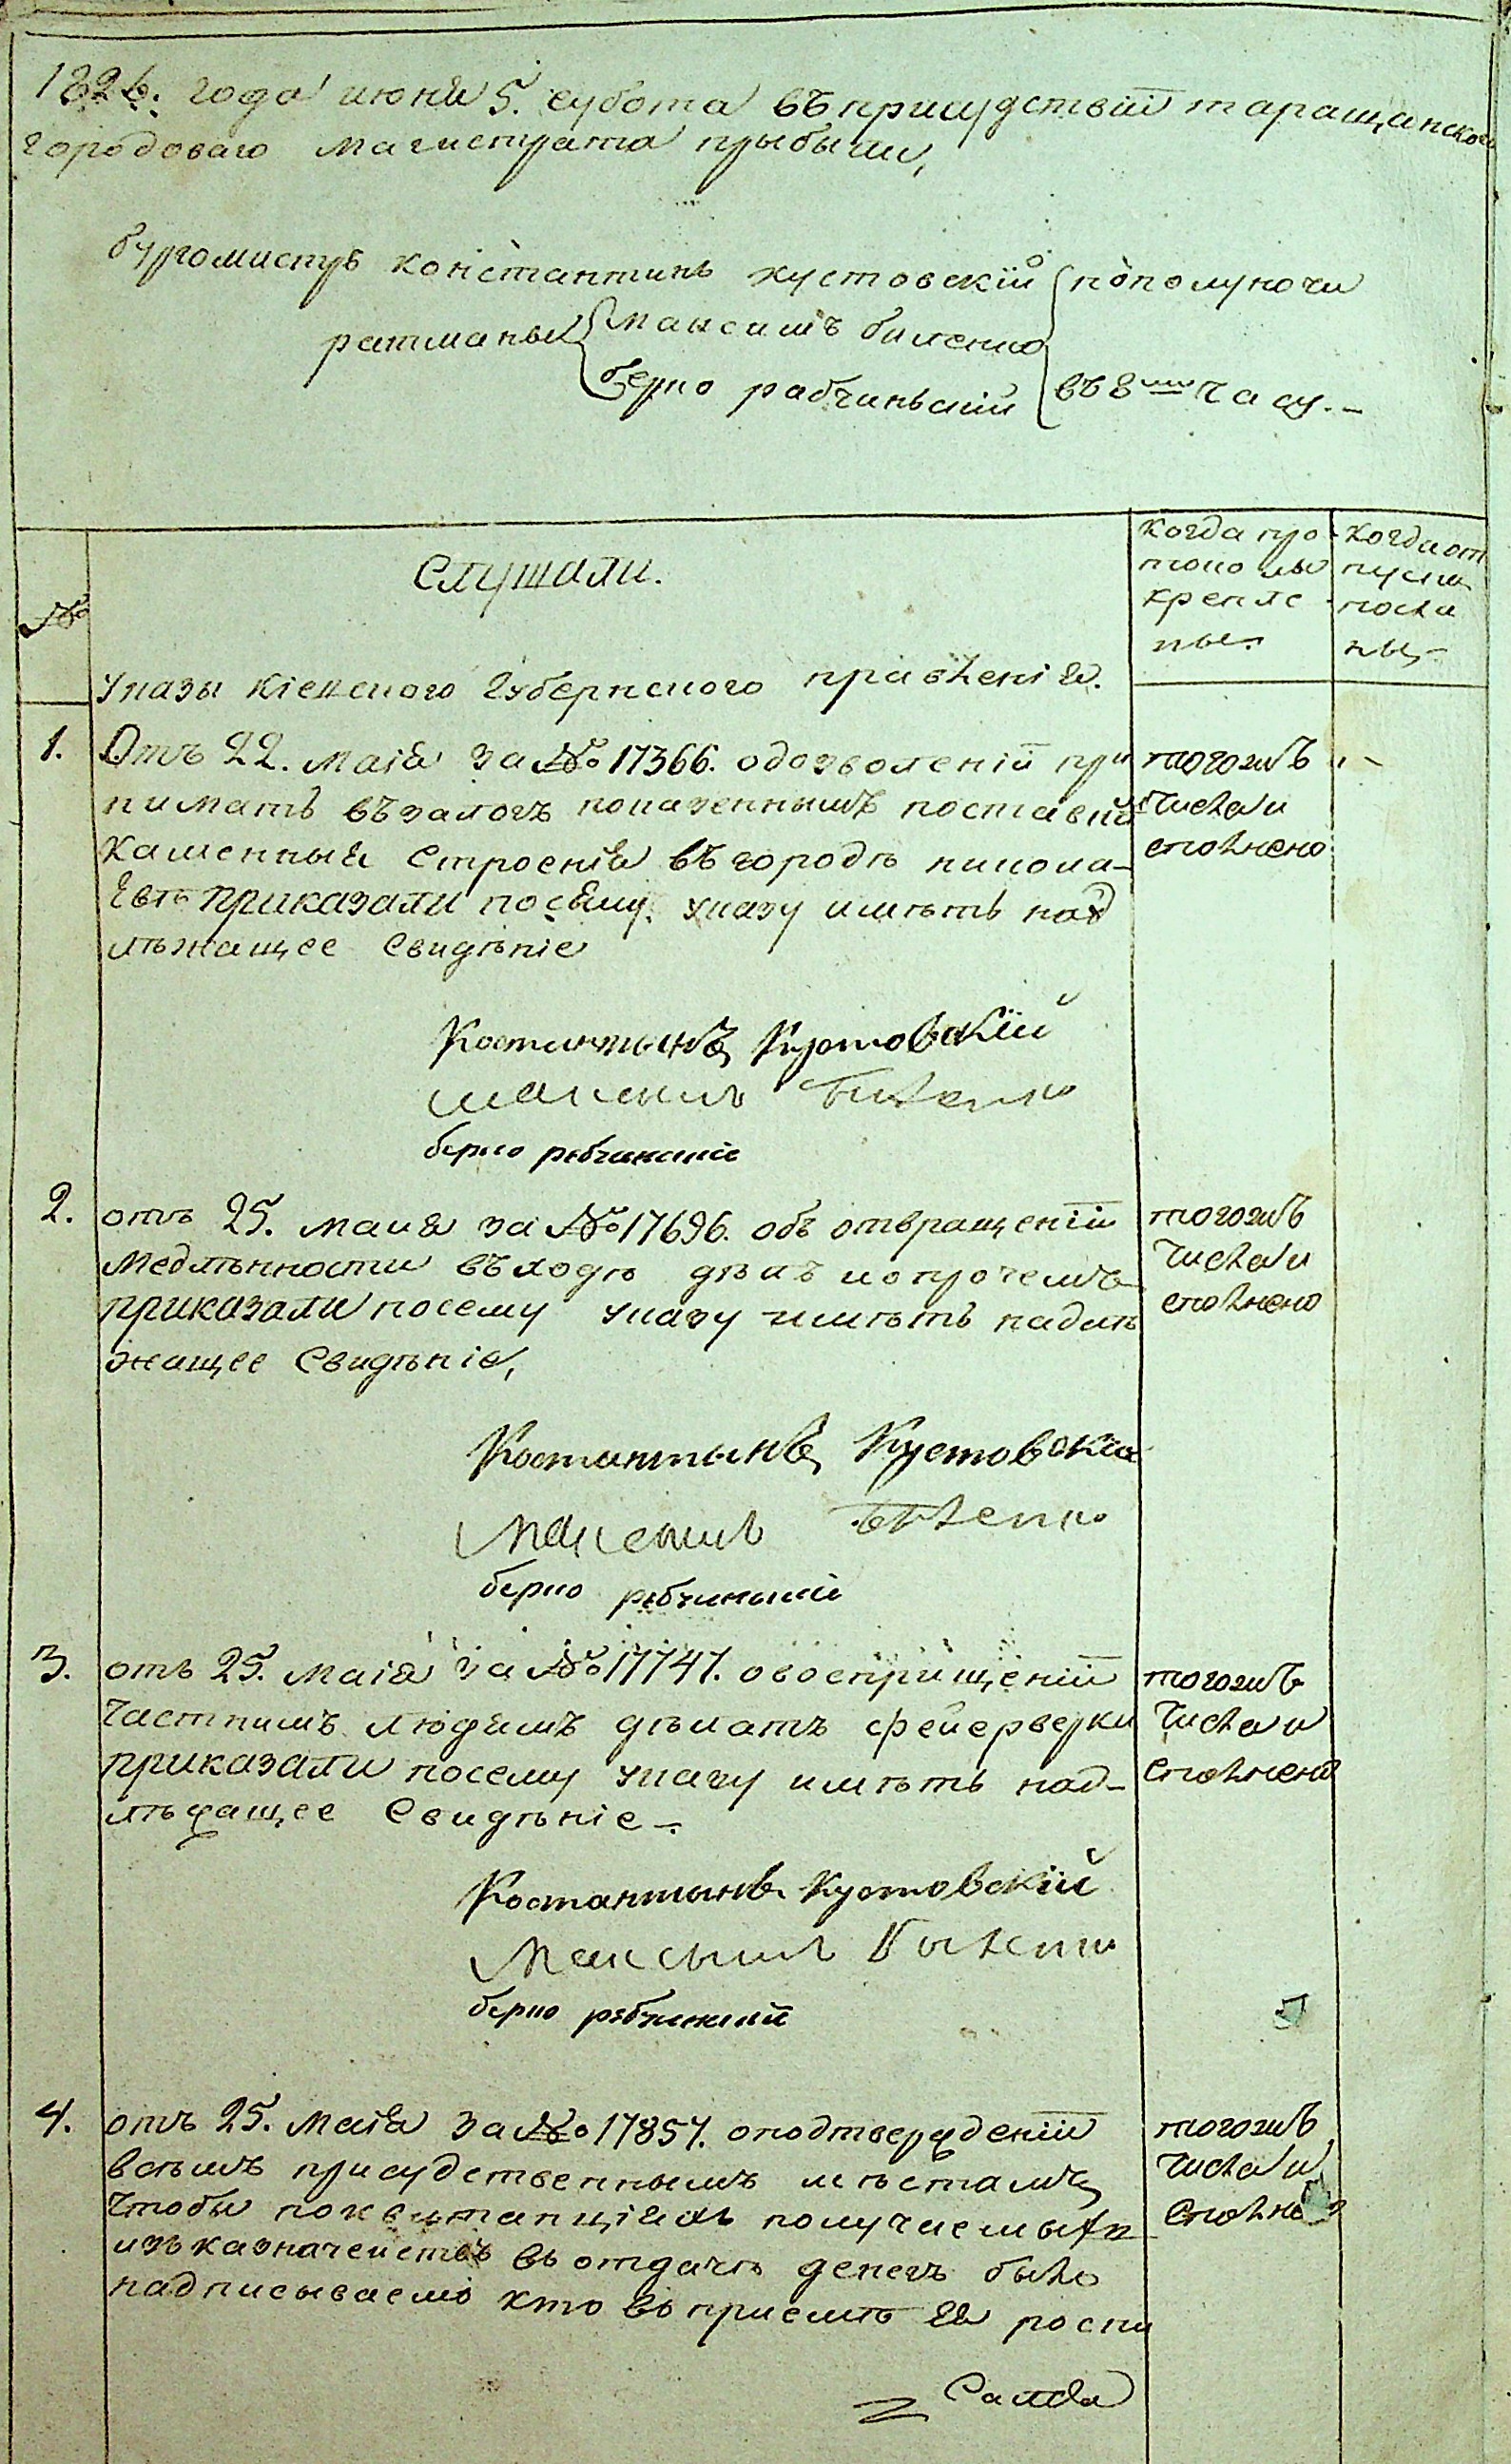 1826. года июня 5. субота въ присудствіи таращанского
городоваго магистрата прыбыли,
бургомистръ константинъ кустовскій
пополуночи
ратманы
максимъ биленко
берко рабчинскій
въ 8мъ часу.
№
Слушали.
когда про
токолы
крепле
ны.
когда от
пуски
посла
ны,
указы кіевского губернского правленія.
1. Отъ 22. маія за № 17366. о дозволеніи при
нимать въ залогъ показеннымъ поставкамъ
каменныя строенія въ городѣ никола-
евѣ приказали по сему указу имѣть над
лѣжащее свидѣніе
тогожъ
числа и
сполнено
Костантынъ Кустовскій
максымъ Биленко
берко рабчинскій
2. отъ 25. маия за № 17696. объ отвращеніи
медлѣнности въ ходѣ дѣлъ и о прочемъ
приказали по сему указу имѣть надлѣ
жащее свидѣніе,
тогожъ
числа и
сполнено
Костантынъ Кустовскій
Максымъ Биленко
берко рабчинскій
3. отъ 25. маія за № 17747. о восприщеніи
частнимъ людямъ дѣлатъ фейерверки
приказали посему указу имѣть над-
лѣжащее свидѣніе
тогожъ
числа и
сполнено
Костантынъ Кустовскій
Максымъ Быленко
берко рабчинскій
4. отъ 25. маія за № 17857. о подтверждѣніи
всѣмъ присудственнымъ мѣстамъ
чтобы по квитанціяхъ получаемыхъ
изъ казначействъ въ отдачѣ денегъ было
надписываемо кто въ приемѣ ея роспи
тогожъ
числа и
сполнено
Салса